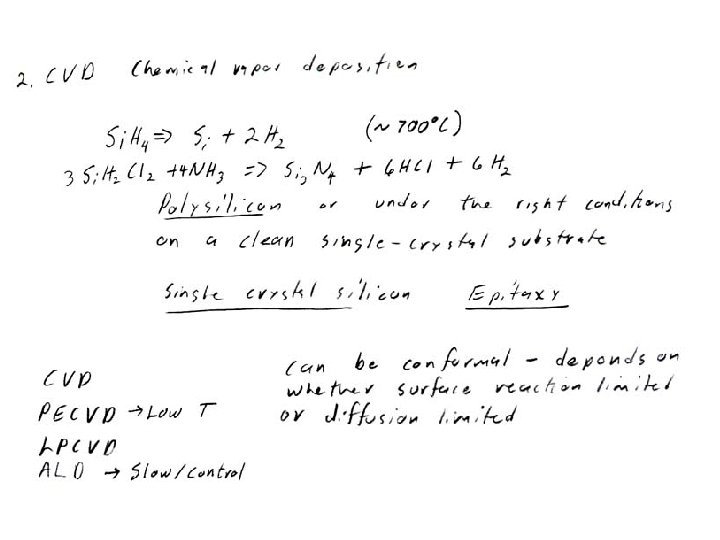 2. CVD Chemical vapor deposition
SiH₄ => Si + 2H₂ (~700°C)
3 SiH₂Cl₂ + 4NH₃ => Si₃N₄ + 6HCl + 6H₂
Polysilicon or under the right conditions
on a clean single-crystal substrate
Single crystal silicon Epitaxy
CVD
PECVD → Low T
LPCVD
ALD → Slow/Control
can be conformal - depends on
whether surface reaction limited
or diffusion limited